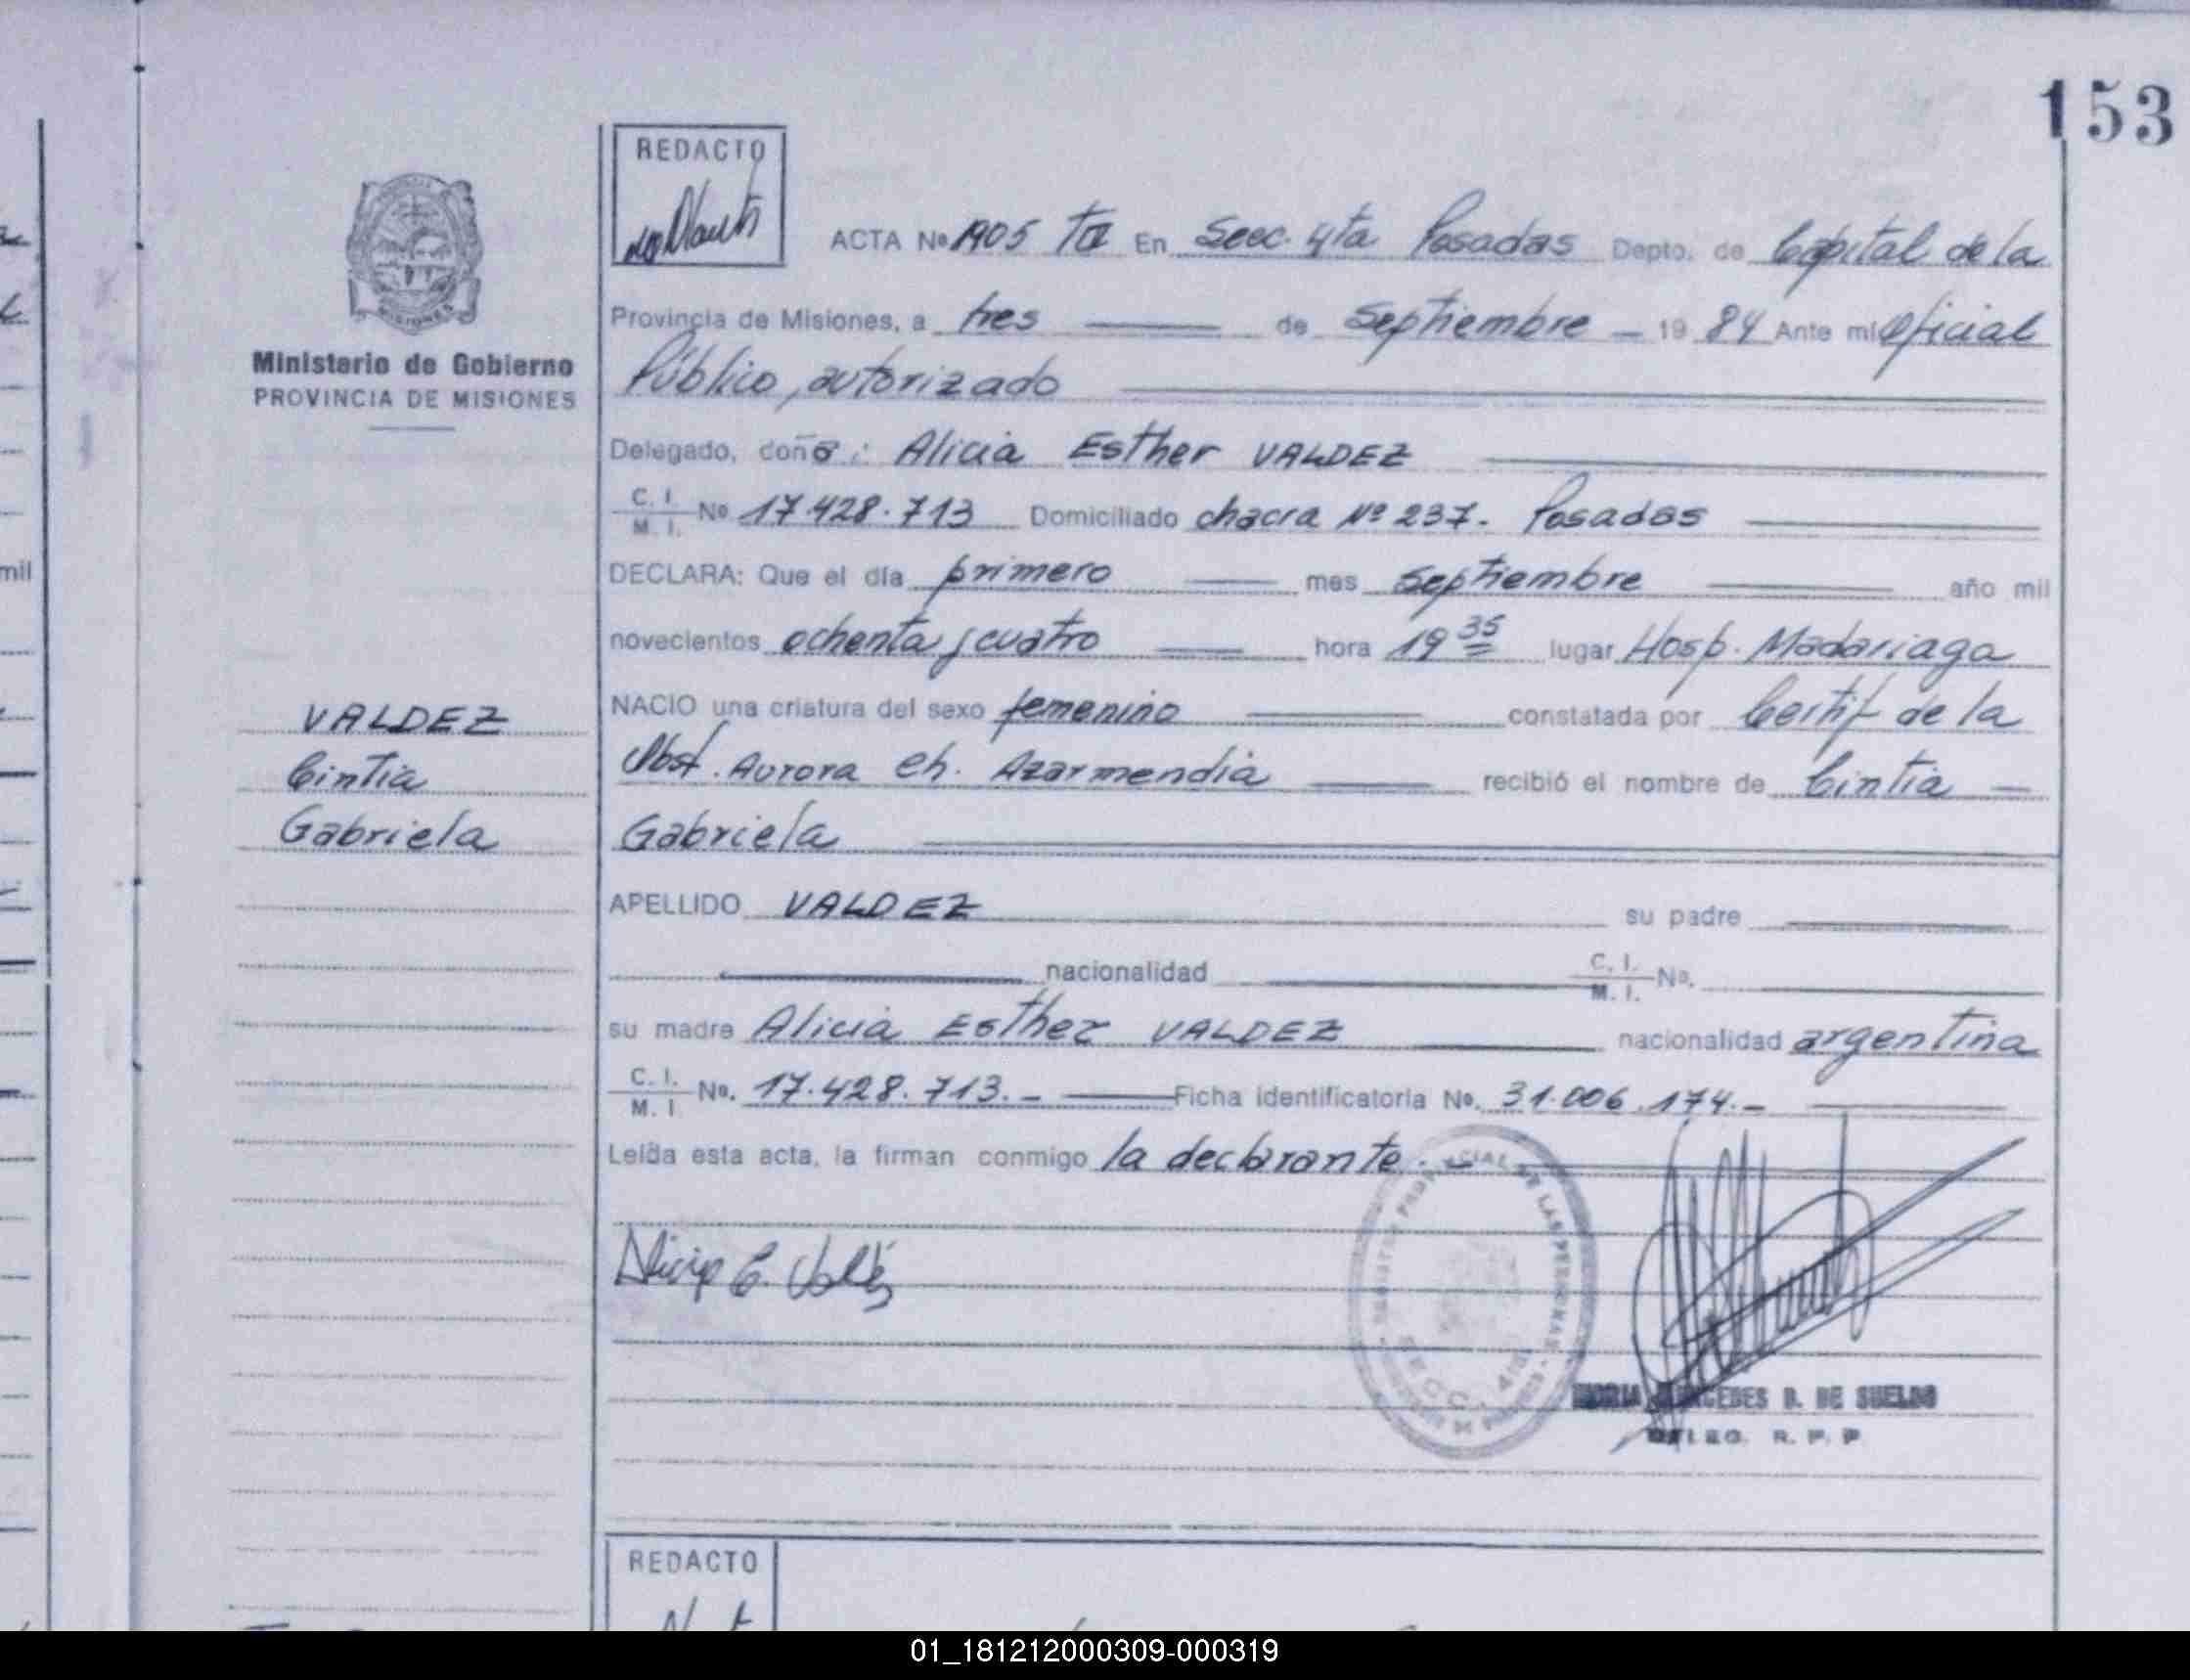 153
REDACTO
ACTA No 1905 Ta En Secc. 4ta Posadas Depto. de Capital de la
Provincia de Misiones, a tres de Septiembre 19 84 Ante mí Oficial
Ministerio de Gobierno
PROVINCIA DE MISIONES
Público, autorizado
Delegado, doña: Alicia Esther VALDEZ
C. I. M. I. No 17.428.713 Domiciliado chacra Nº 237. Posadas
DECLARA: Que el día primero mes septiembre año mil
novecientos ochenta y cuatro hora 19 35 lugar Hosp. Madariaga
NACIO una criatura del sexo femenino constatada por Certif de la
Obst. Aurora Ch. Azarmendia recibió el nombre de Cintia
Gabriela
VALDEZ
Cintia
Gabriela
APELLIDO VALDEZ su padre
nacionalidad C. I. M. I. No.
su madre Alicia Esther VALDEZ nacionalidad argentina
C. I. M. I No. 17.428.713.- Ficha identificatoria No. 31.006.174.-
Leída esta acta, la firman conmigo la declarante.-
Alicia E. Valdez
MERCEDES B. DE SUELDO
DELEG. R. P. P
REDACTO
mil
01_181212000309-000319